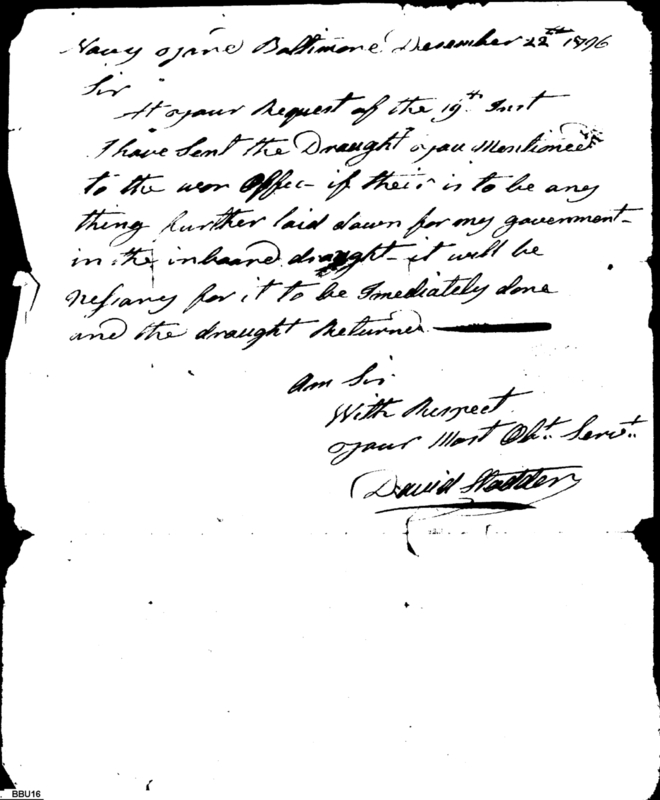 Navy yard Baltimore December 22nd 1796
Sir
At your Request of the 19th Inst
I have Sent the Draught you Mentioned
to the wor Office if their is to be any
thing further laid down for my government
in the inboard draught it will be
Nessary for it to be Imediately done
and the draught Returned
Am Sir
With Respect
your Most Obt. Servt.
David Stodder
BBU16